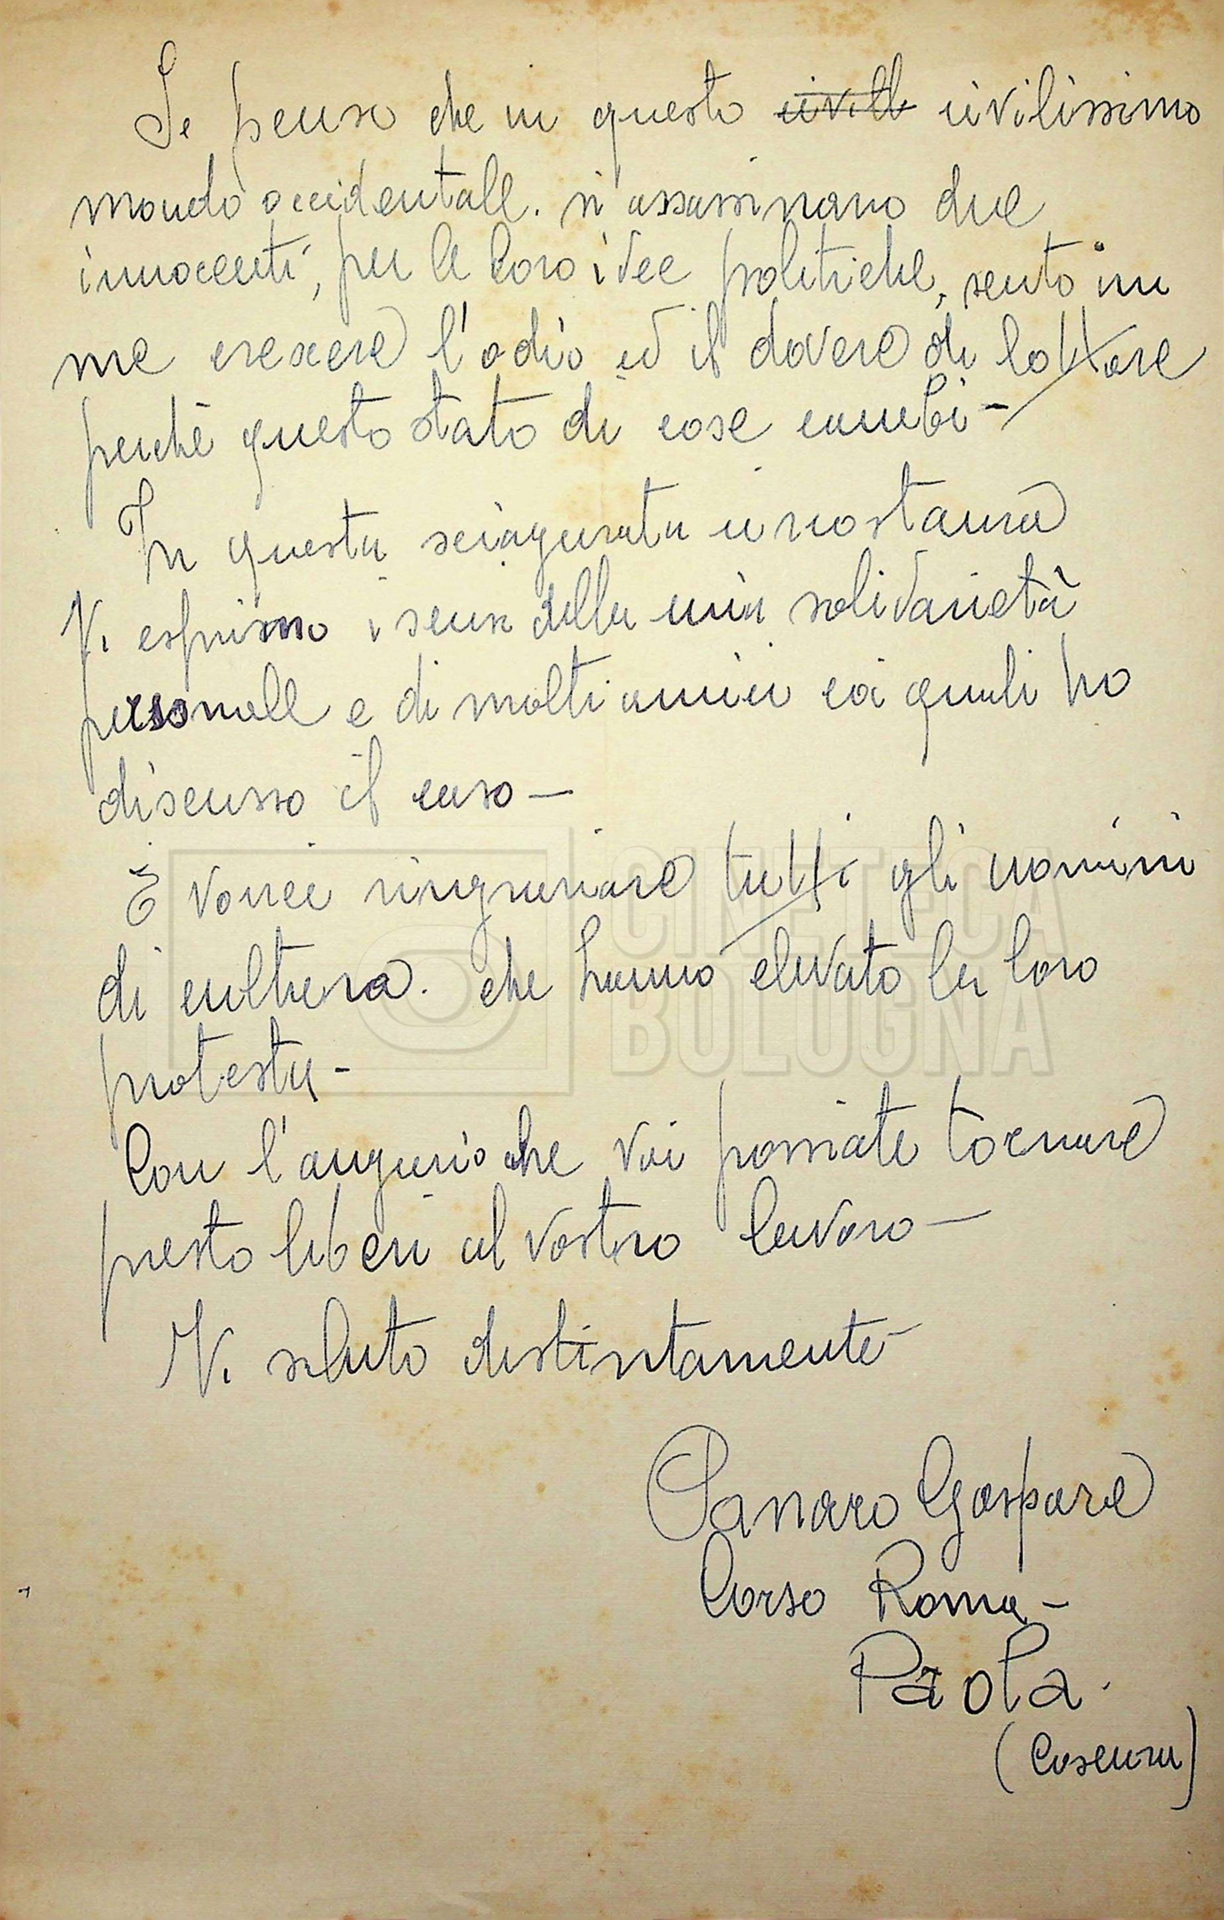 Se penso che in questo civile civilissimo
mondo occidentale. si assassinano due
innocenti, per le loro idee politiche, sento in
me crescere l'odio ed il dovere di lottare
perchè questo stato di cose cambi -
In questa sciagurata circostanza
Vi esprimo i sensi della mia solidarietà
personale e di molti amici coi quali ho
discusso il caso -
E vorrei ringraziare tutti gli uomini
di cultura. che hanno elevato la loro
protesta -
Con l'augurio che voi possiate tornare
presto liberi al vostro lavoro -
Vi saluto distintamente -
Gaspare
Corso Roma -
Paola.
(Cosenza)
CINETECA
BOLOGNA